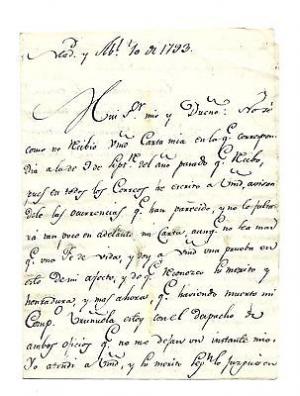 y Ab.l 10 de 1793.
Mui S.r mio y Dueño: No sé
como no Recibio Vmd Carta mia en la q.e correspon-
dia á la de 9 de del año pasado q.e Recibo,
pues en todos los Correos he escrito á Vmd avisan-
dole las ocurrencias q.e han parecido, y no le falta-
rá tan poco en adelante mi Carta, aunq.e no sea mas
q.e una Fe de Vida, y doy á Vmd una prueba en
esto de mi afecto, y de q.e Reconozco su merito y
honradura, y mas ahora q.e haviendo muerto mi
Comp.o Urruñuela estoy con el despacho de
ambos oficios q.e no me dejan un instante mio.
Yo atendi á Vmd, y su merito